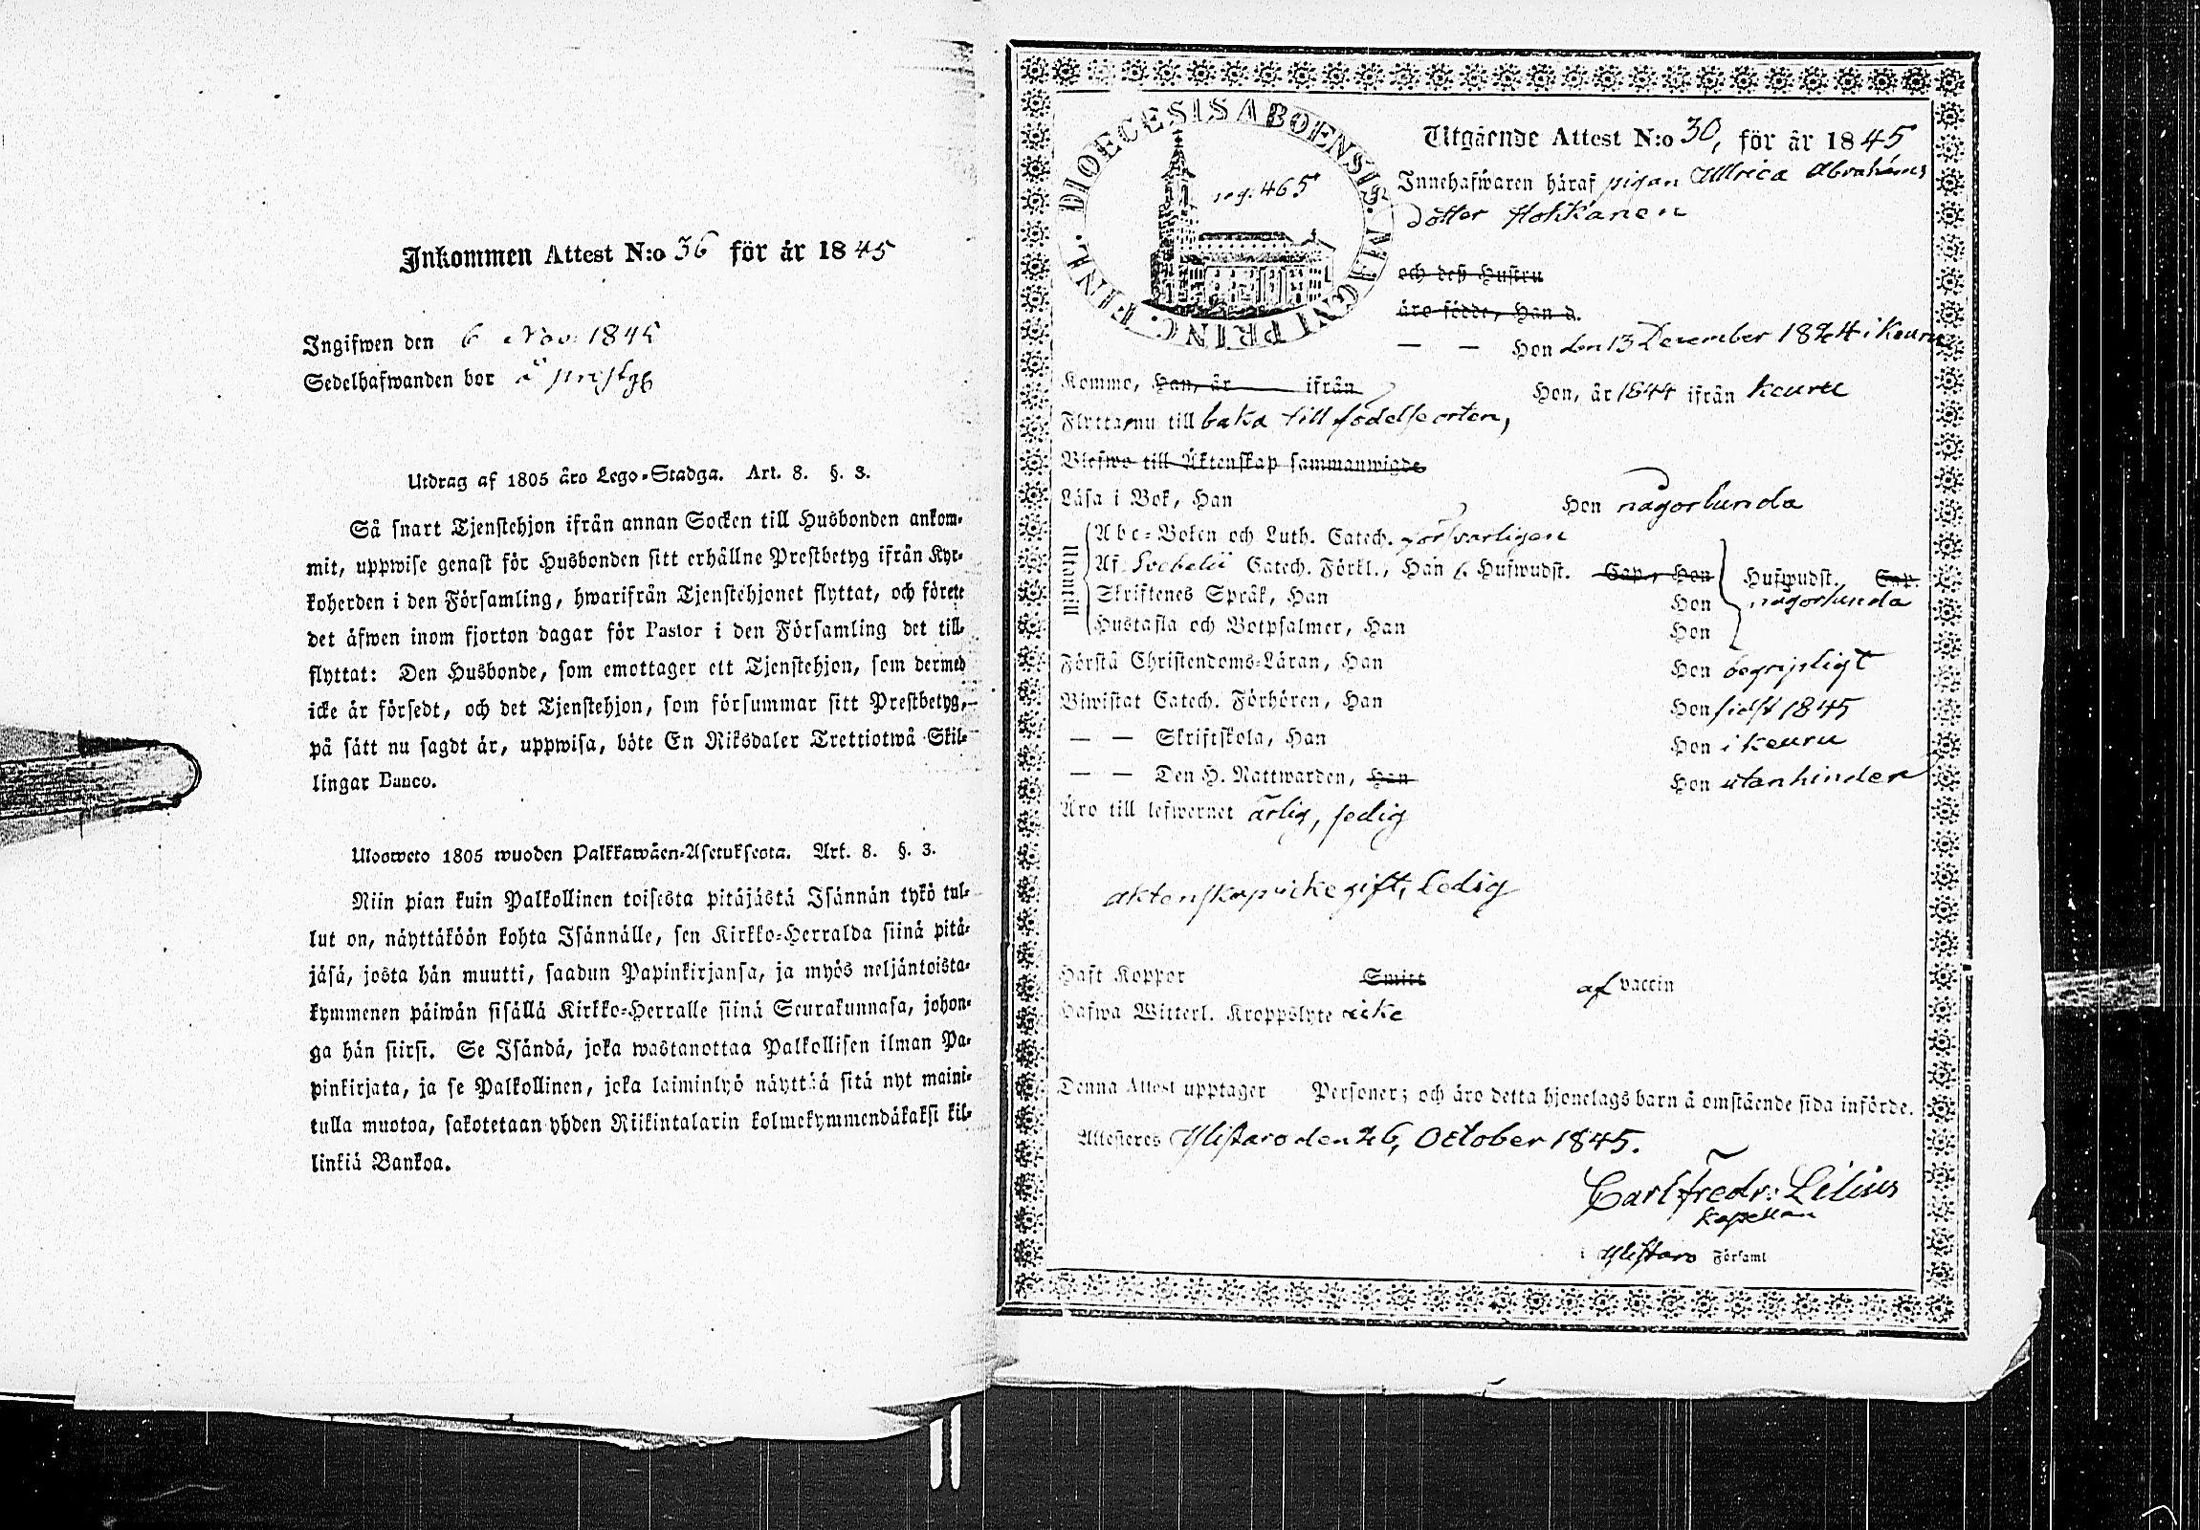 Inkommen Attest N:o 36 för år 1845
Ingifwen den 6 Nov: 1845
Sedelhafwanden bor å
Utdrag af 1805 åro Lego-Stadga. Art. 8. §. 3.
Så snart Tjenstehjon ifrån annan Socken till Husbonden ankom-
mit, uppwise genast för Husbonden sitt erhållne Prestbetyg ifrån Kyr-
koherden i den Församling, hwarifrån Tjenstehjonet flyttat, och förete
det äfwen inom fjorton dagar för Pastor i den Församling det till-
flyttat: Den Husbonde, som emottager ett Tjenstehjon, som dermed
icke är försedt, och det Tjenstehjon, som försummar sitt Prestbetyg,
på sätt nu sagdt är, uppwisa, böte En Riksdaler Trettiotwå Skil-
lingar Banco.
Ulosweto 1805 wuoden Palkkawäen-Asetuksesta. Art. 8. §. 3.
Niin pian kuin Palkollinen toisesta pitäjästä Isännän tykö tul-
lut on, näyttäköön kohta Isännälle, sen Kirkko-Herralda siinä pitä-
jäsä, josta hän muutti, saadun Papinkirjansa, ja myös neljäntoista-
kymmenen päiwän sisällä Kirkko-Herralle siinä Seurakunnasa, johon-
ga hän siirsi. Se Isändä, joka wastanottaa Palkollisen ilman Pa-
pinkirjata, ja se Palkollinen, joka laiminlyö näyttää sitä nyt maini-
tulla muotoa, sakotetaan yhden Riikintalarin kolmekymmendäkaksi kil-
linkiä Bankoa.
DIOECESIS ABOENSIS. MAGNI PRINC. FINL.
pag. 465
Utgående Attest N:o 30, för år 1845
Innehafwaren häraf pigan Ullrica Abrahams
dotter Hokkanen
och deß Hustru
äro födde, Han d.
— — Hon den 13 December 1824 i Keuru
Kommo, Han, år ifrån Hon, år 1844 ifrån Keuru
Flytta nu till baka till födelseorten,
Blefwo till Äktenskap sammanwigde
Läsa i Bok, Han Hon någorlunda
Utantill
Abc-Boken och Luth. Catech. försvarligen
Af Svebelii Catech. Förkl., Han 6 Hufwudst. Cap., Hon Hufwudst. Cap.
Skriftenes Språk, Han Hon någorlunda
Hustafla och Botpsalmer, Han Hon
Förstå Christendoms-Läran, Han Hon begripligt
Biwistat Catech. Förhören, Han Hon sidst 1845
— — Skriftskola, Han Hon i Keuru
— — Den H. Nattwarden, Han Hon utan hinder
Äro till lefwernet ärlig, sedig
äktenskap icke gift, ledig
Haft Koppor Smitt af vaccin
Hafwa Witterl. Kroppslyte icke
Denna Attest upptager Personer; och äro detta hjonelags barn å omstående sida införde.
Attesteres Ylistaro den 26, October 1845.
Carl Fredr: Lilius
Kapellan
i Ylistaro Församl